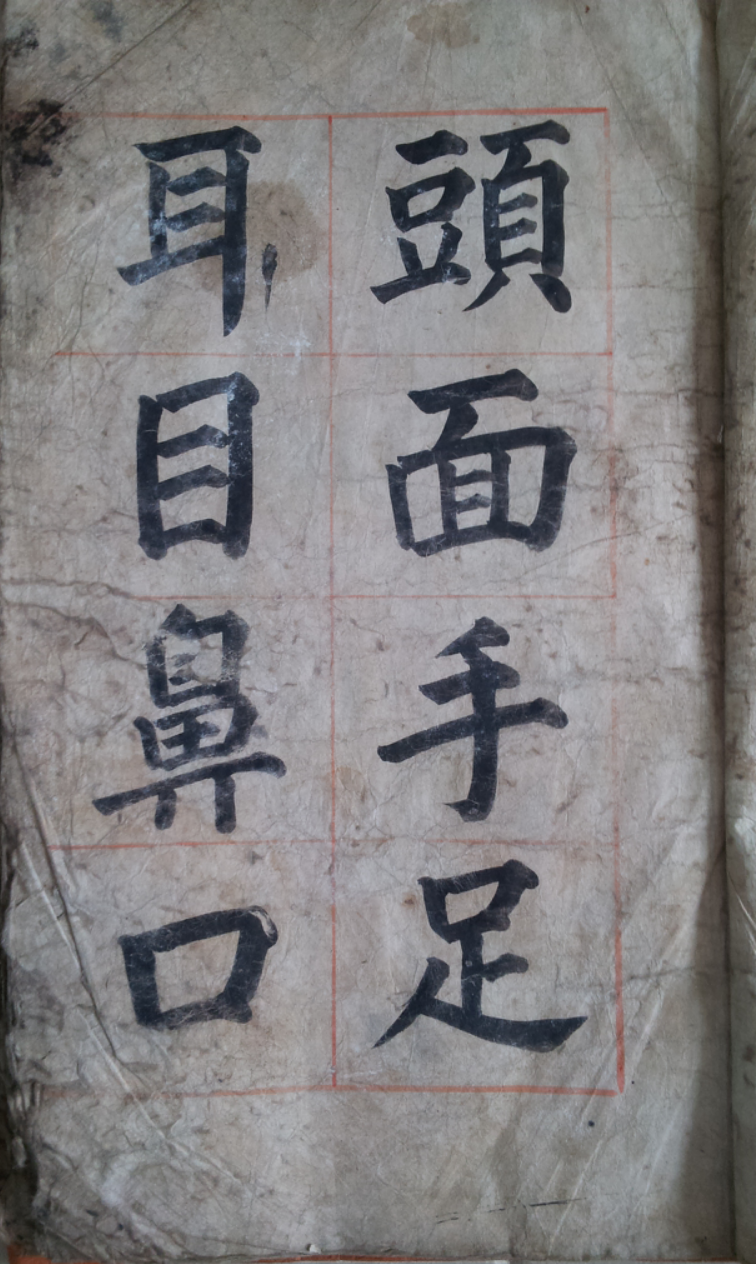 頭面手足
耳目鼻口